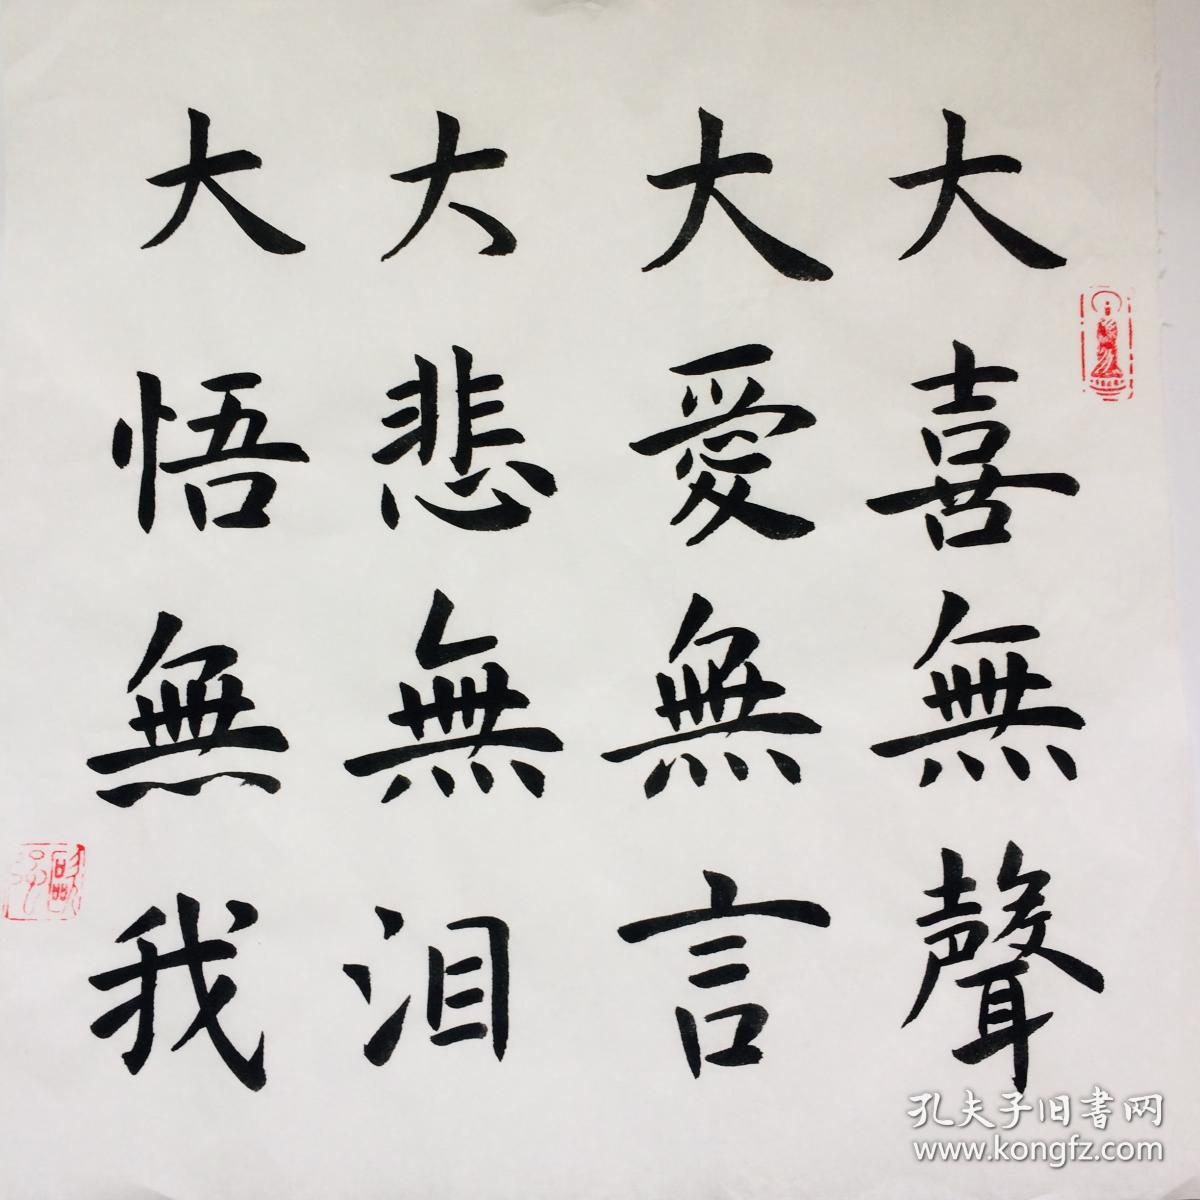 大喜無聲
大愛無言
大悲無泪
大悟無我
孔夫子旧書网
www.kongfz.com